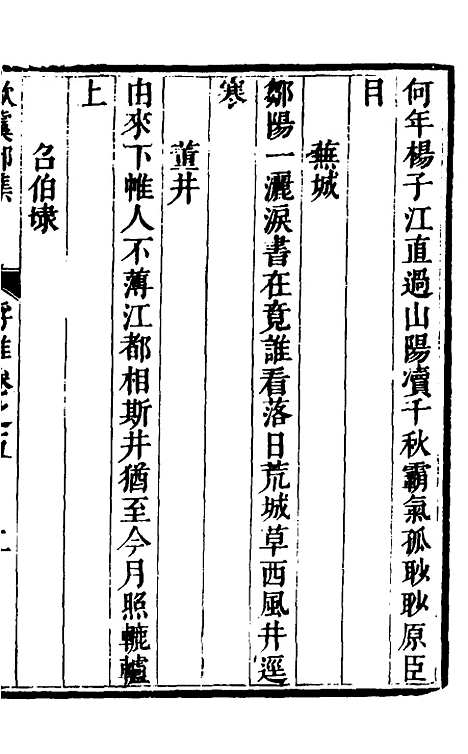 何年楊子江直過山陽瀆千秋霸氣孤耿耿原臣
目
蕪城
鄒陽一灑淚書在竟誰看落日荒城草西風井逕
寒
董井
由來下帷人不薄江都相斯井猶至今月照轆轤
上
召伯埭